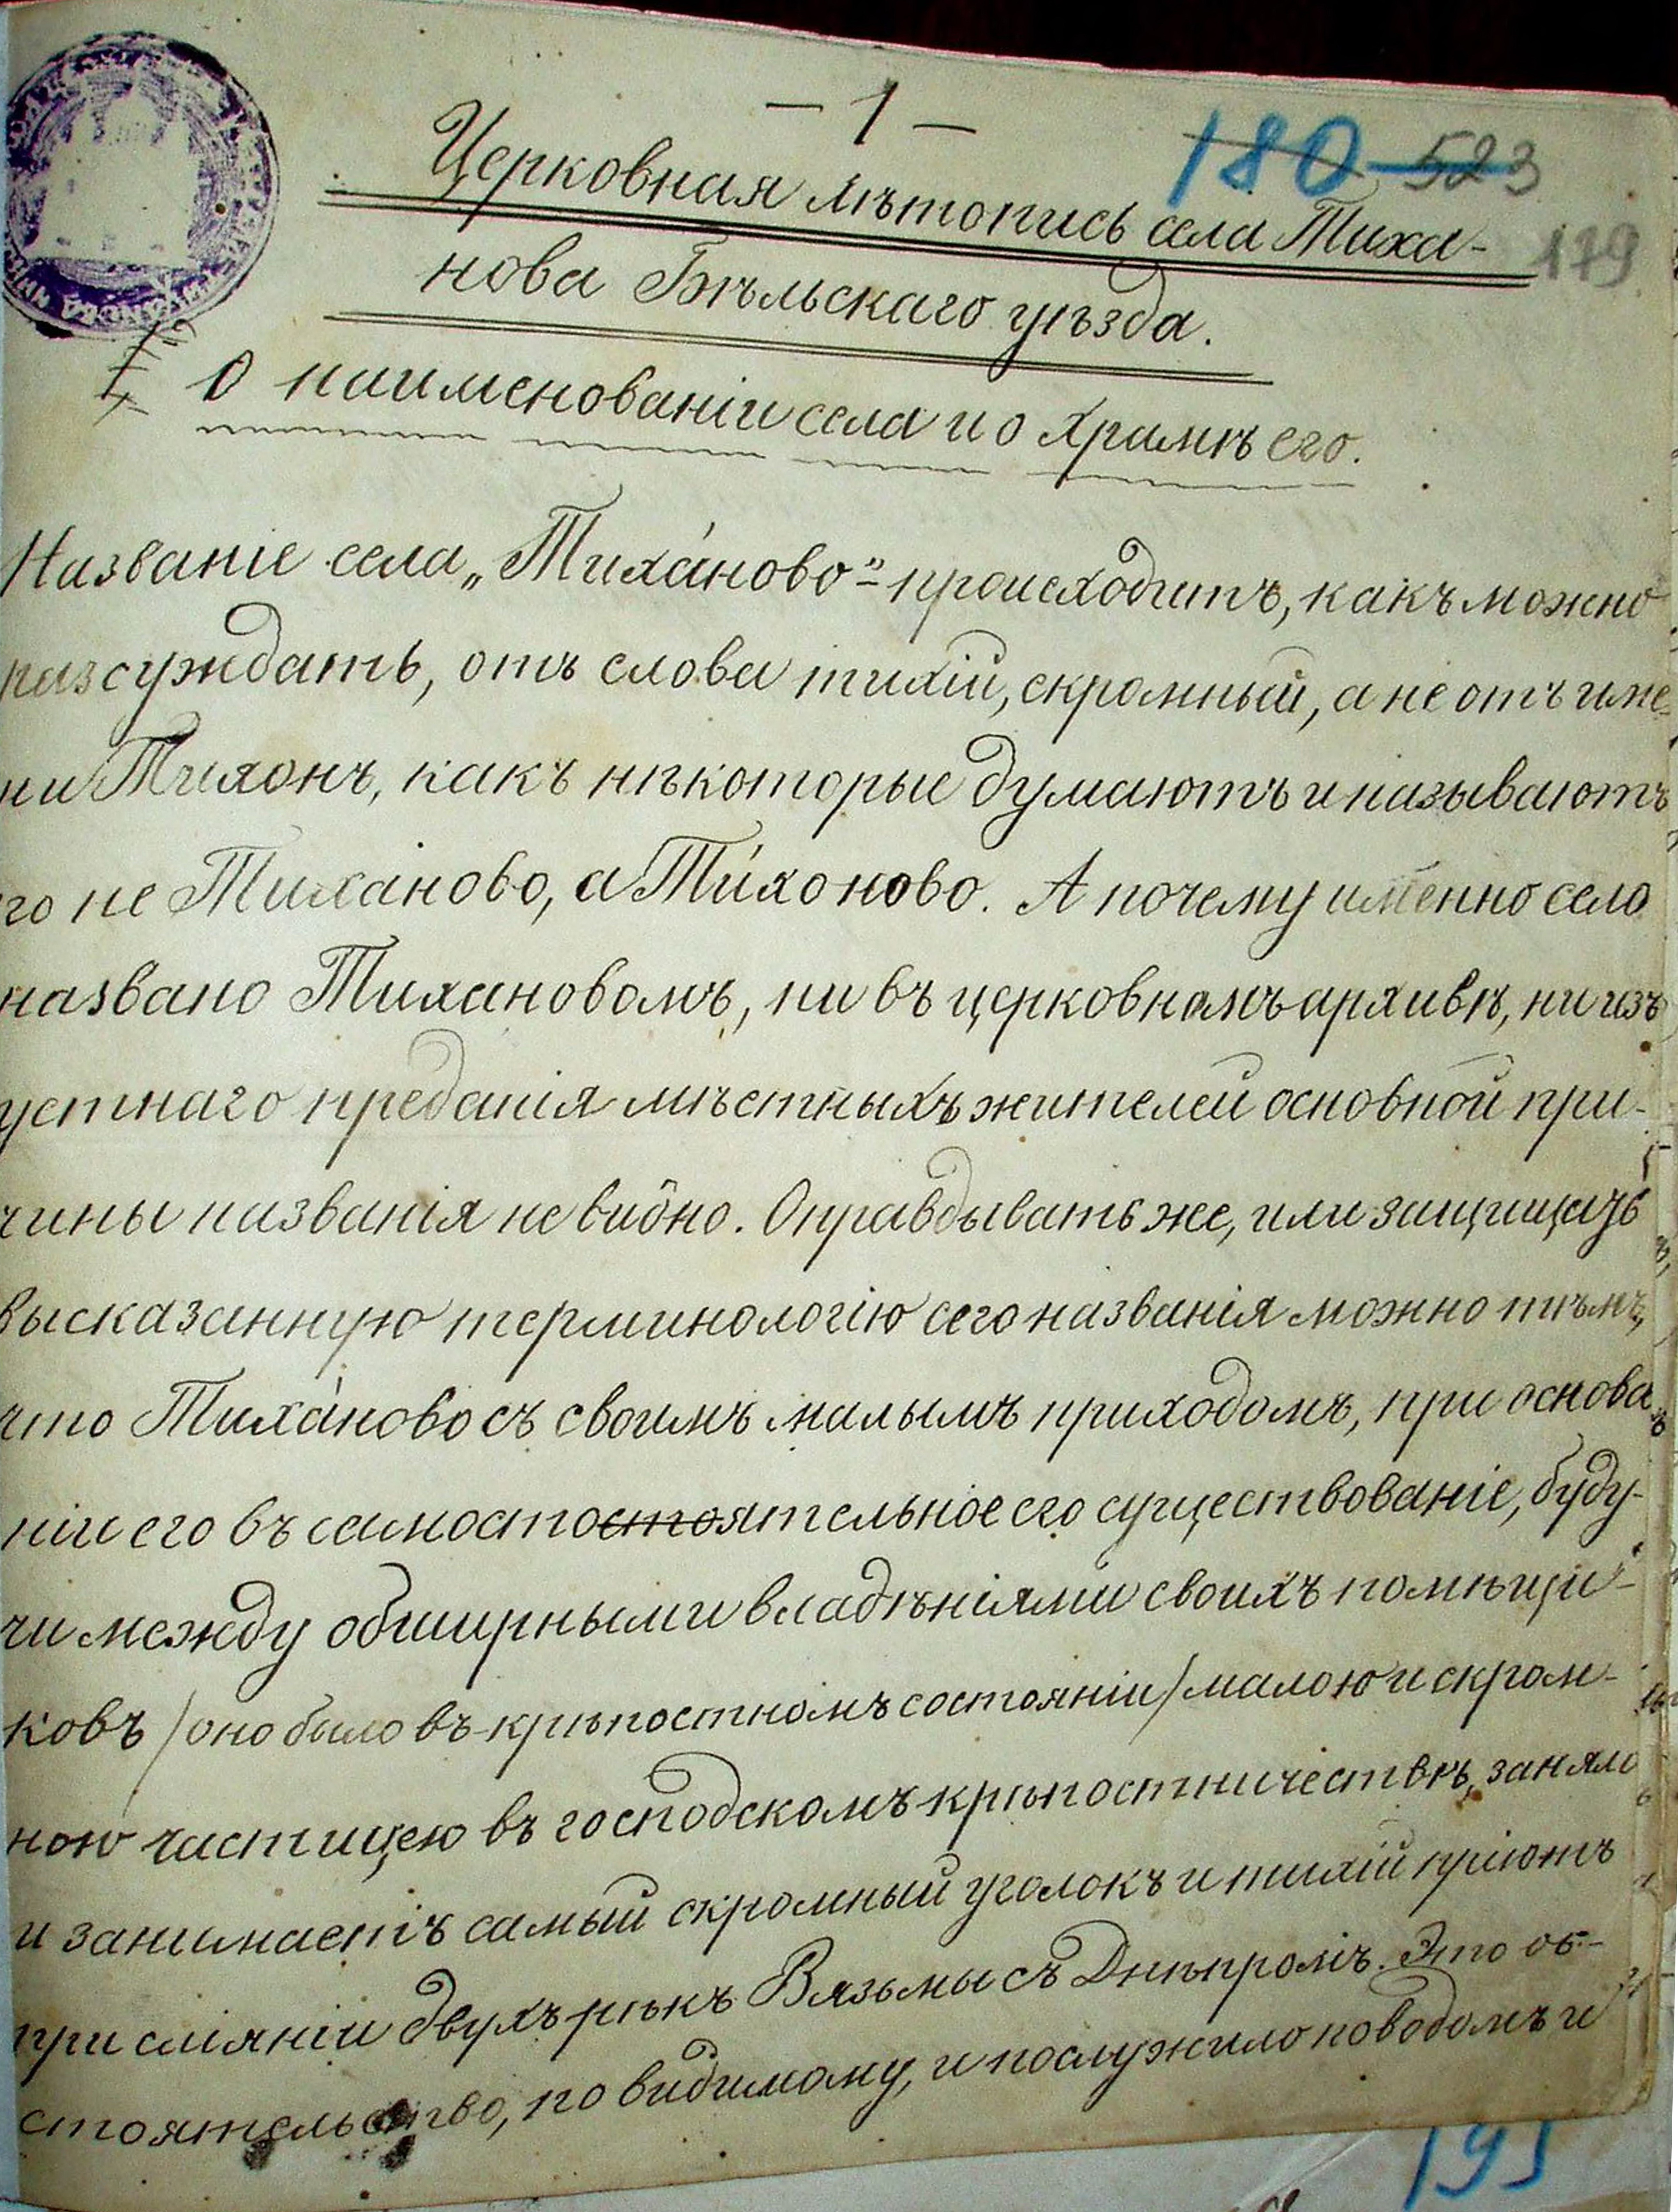 – 1 –
180 523
Церковная лѣтопись села Тиха-
179
нова Бѣльскаго уѣзда.
I, О наименованіи села и о храмѣ его.
Названіе села „Тиха́ново“ – происходитъ, какъ можно
разсуждать, отъ слова тихій, скромный, а не отъ име-
ни Тихонъ, какъ нѣкоторые думаютъ и называютъ
го не Тиха́ново, а Ти́хоново. А почему именно село
названо Тихановомъ, ни въ церковномъ архивѣ, ни изъ
устнаго преданія мѣстныхъ жителей основной при-
чины названія не видно. Оправдывать же, или защищать
высказанную терминологію сего названія можно тѣмъ,
что Тиха́ново съ своимъ малымъ приходомъ, при основа
ніи его въ самостостоятельное его существованіе, буду-
чи между обширными владѣніями своихъ помѣщи-
ковъ /оно было въ крѣпостномъ состояніи/ малою и скром-
ною частицею въ господскомъ крѣпостничествѣ, заняло
и занимаетъ самый скромный уголокъ и тихій пріютъ
при сліяніи двухъ рѣкъ Вязьмы съ Днѣпромъ. Это об-
стоятельство, по видимому, и послужило поводомъ и